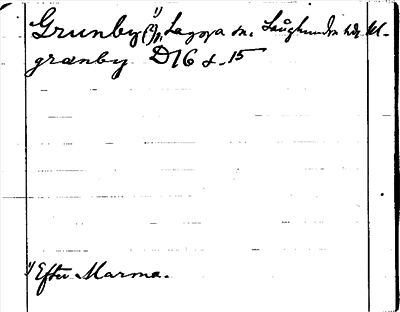 Grunby¹⁾(?), Lagga sn. Långhundra hd. Ul-
granby D16 d. 15
¹⁾ Efter Marma.